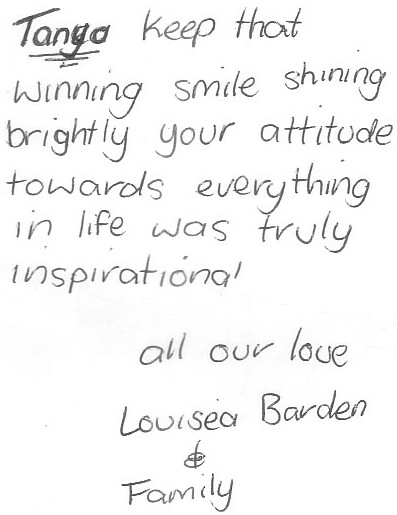 Tanya keep that
winning smile shining
brightly your attitude
towards everything
in life was truly
inspirational
all our love
Louisea Barden
&
Family